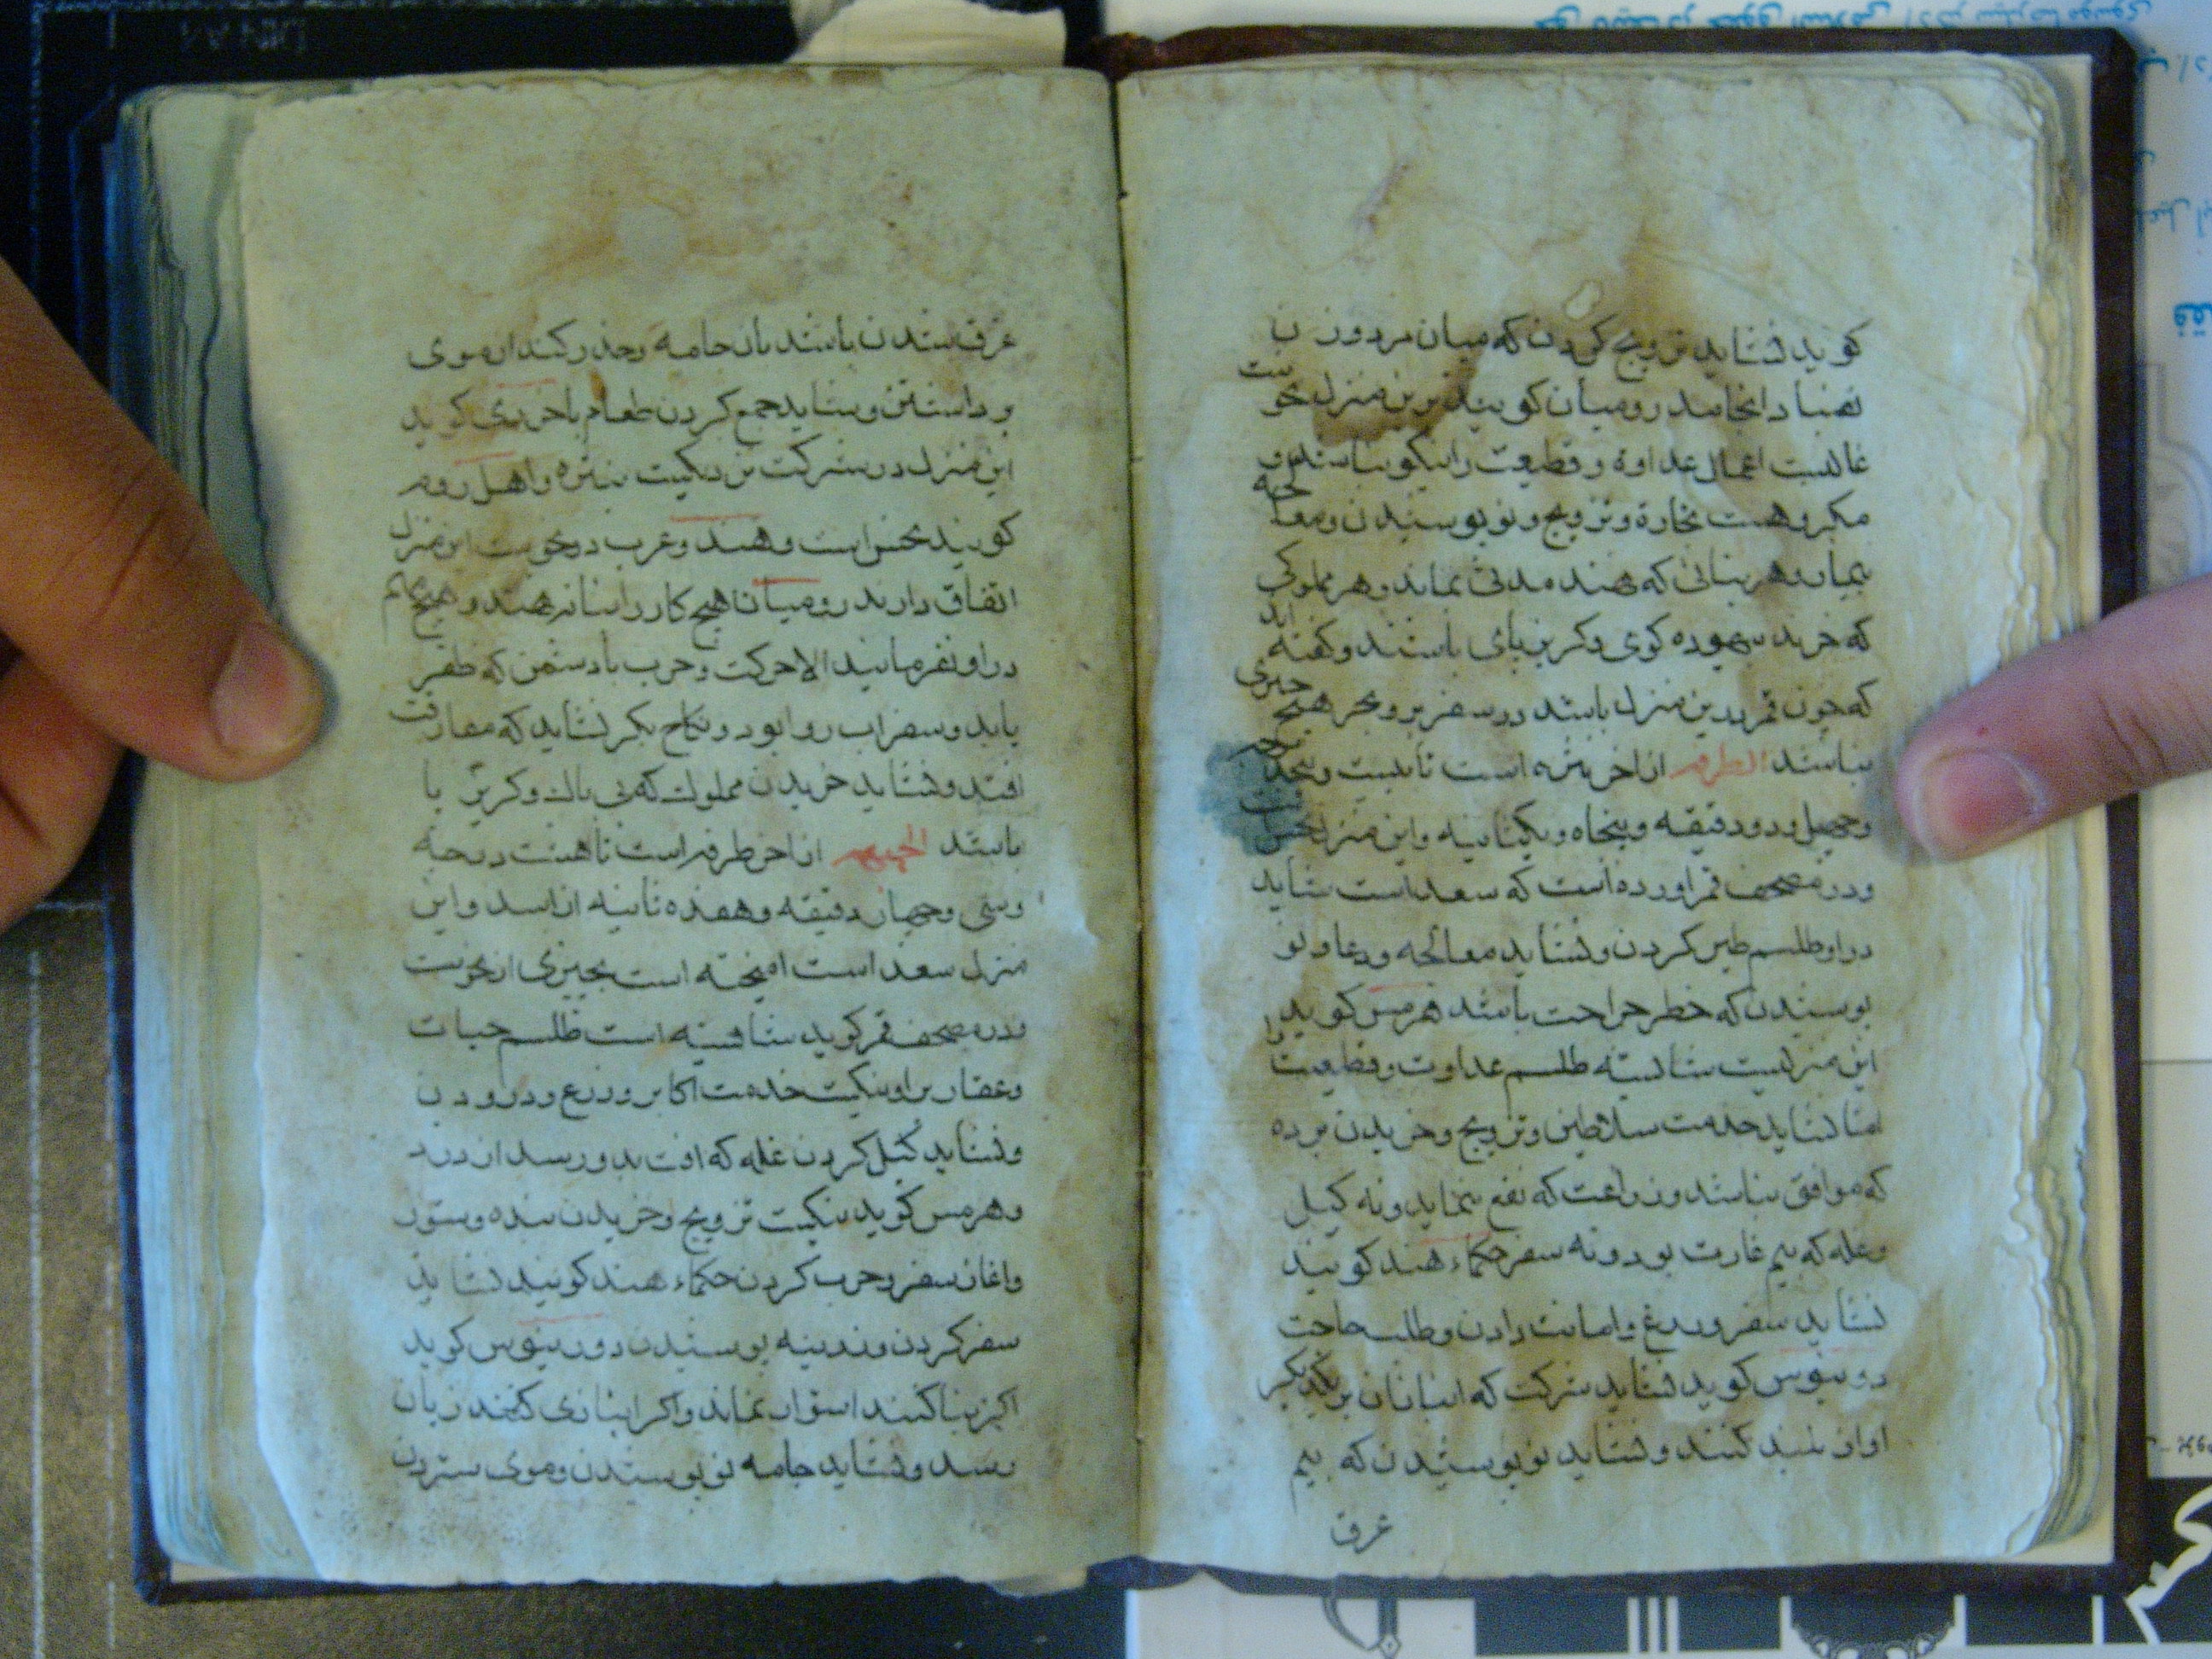 کوید نشاید تزویج کردن که میان مرد و زن
بفساد انجامد رومیان کویند برین منزل نحوست
غالبست اعمال عداوة و قطیعت را نیکو باشد و
مکر و هست تجارة و تزویج و نو پوشیدن و معالجه
بیمار و هر بنائی که نهند مدتی نماند و هر مملوکی
که خرید بیهوده کوی و کریزپای باشد و کفته اند
که چون قمر درین منزل باشد در سفر بر و بحر هیچ خیری
نباشد الطرفه از اخر نثره است تا بیست و پنج درجه
و چهل و دو دقیقه و پنجاه و یکثانیه و این منزل نحس است
و در مصحف قمر اورده است که سعد است شاید
در او طلسم طین کردن و نشاید معالجه و دعا و نو
پوشیدن که خطر جراحت باشد هرمس کوید
این منزلیست شایسته طلسم عداوت و قطیعت را
اما نشاید خدمت سلاطین و تزویج و خریدن برده
که موافق نباشد و زراعت که نفع ننماید و نه کیل
و غله که بیم غارت بود و نه سفر حکماء هند کویند
نشاید سفر و ودیع و امانت دادن و طلب حاجت
کوید نشاید شرکت که انبازان بر یکدیکر
اواز بلند کنند و نشاید نو پوشیدن که بیم
غرق
غرق شدن باشد بان جامه و حذر کند از موی
برداشتن و شاید جمع کردن طعام باخردی کوید
این منزل در شرکت نیکیست نثره و اهل روم
کویند نحس است و هند و عرب در نحوست این منزل
اتفاق دارند رومیان هیچ کار را شایسته نهند و هیچ
در او نفرمایند الا حرکت و حرب با دشمن که ظفر
یابد و سفر اب روا بود و نکاح بکر نشاید که مفارقت
افتد و نشاید خریدن مملوک که بی باک و کریز پا
باشد الجبهه از اخر طرفه است تا هشت درجه
و سی و چهار دقیقه و هفده ثانیه از اسد و این
منزل سعد است امیخته است بچیزی از نحوست
و در مصحف قمر کوید شایسته است طلسم حیات
و عقارب را و نیکیست خدمت اکابر و زرع و درودن
و نشاید کیل کردن غله که افت بدو رسد از دزد
و هرمس کوید نیکیست تزویج و خریدن بنده و ستور
و اغاز سفر و حرب کردن حکماء هند کویند نشاید
سفر کردن و زرینه پوشیدن کوید
اکر بنا کنند استوار نماند و اکر انبازی کنند زیان
رسد و نشاید جامه نو پوشیدن و موی ستردن